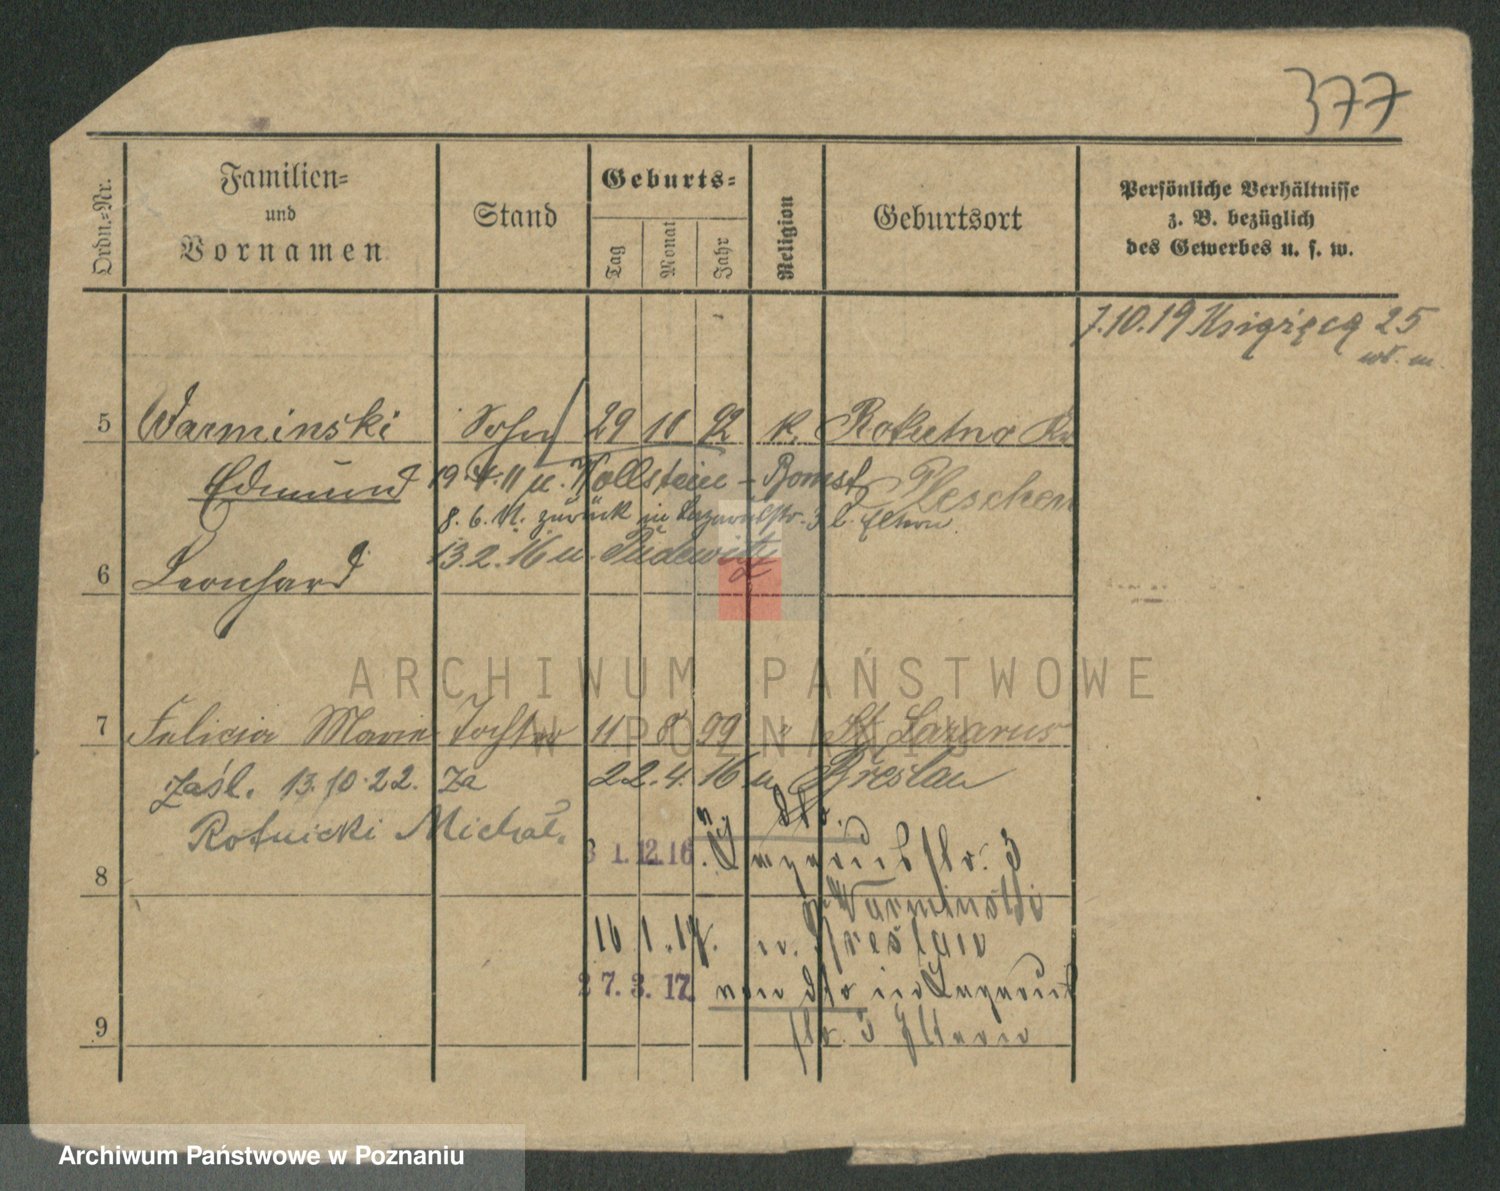 377
Ordn.-Nr.
Familien-
und
Vornamen
Stand
Geburts-
Tag
Monat
Jahr
Religion
Geburtsort
Persönliche Verhältnisse
z. B. bezüglich
des Gewerbes u. s. w.
7.10.19 Książęca 25
wł. m.
5 Warminski Sohn 29 10 92 k. Rokietno Kr
Edmund 19.4.11 u. Wollstein - Bomst Pleschen
8.6.11. zurück in Lazarusstr. 3 b. Eltern.
13.2.16 u. Pudewitz
6 Leonhard
ARCHIWUM PAŃSTWOWE
W POZNANIU
7 Felicia Marie Tochter 11 8 99 " St. Lazarus
zaśl. 13.10.22. za 22.4.16 u. Breslau
Rotnicki Michał. v. dto.
8 31.12.16. Lazarusstr. 3
Warminski
16 1.17. u. Breslau
27.3.17. von dto in Lazarus
9 str. 3 Eltern
Archiwum Państwowe w Poznaniu